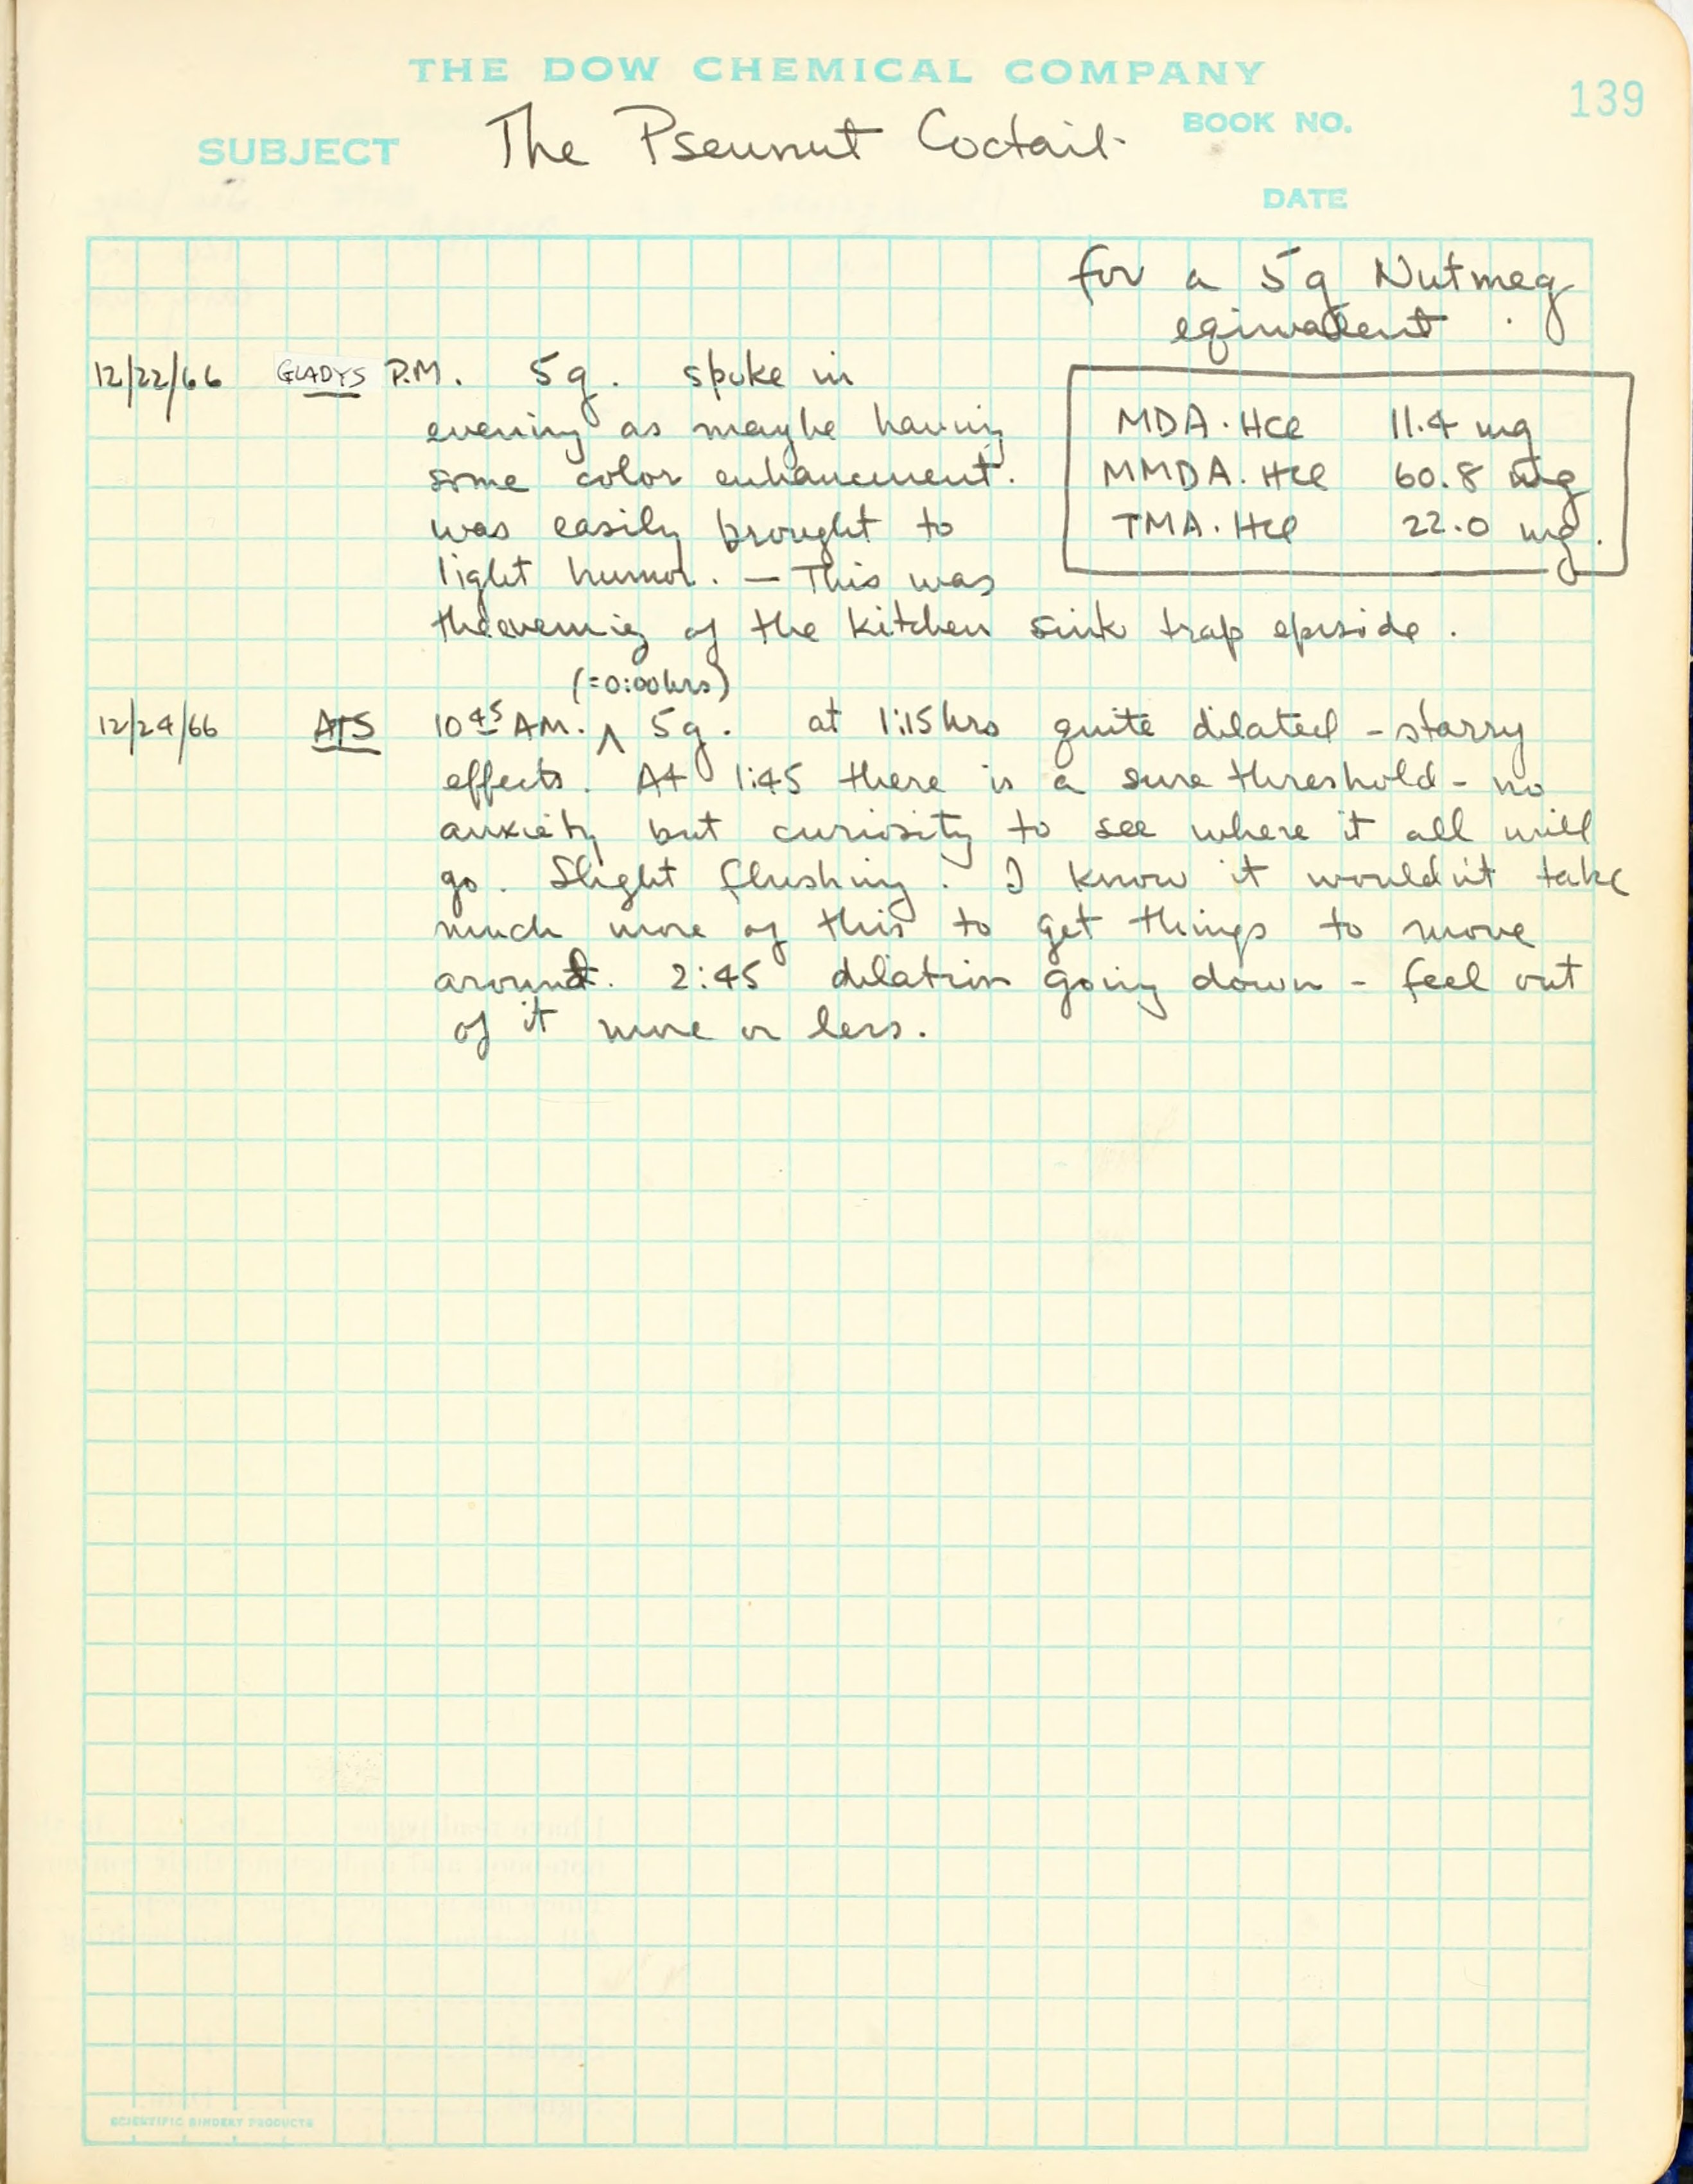 THE DOW CHEMICAL COMPANY
139
SUBJECT The Pseunut Coctail
BOOK NO.
DATE
for a 5g Nutmeg
eqivalent.
12/22/66 GLADYS P.M. 5g. spoke in
evening as maybe having
some color enhancement.
was easily brought to
light humor. — This was
the evening of the kitchen sink trap episode.
MDA·HCl 11.4 mg
MMDA·HCl 60.8 mg
TMA·HCl 22.0 mg.
(=0:00hrs)
12/24/66 ATS 10 45 AM. ^ 5g. at 1:15 hrs quite dilated - starry
effects. At 1:45 there is a sure threshold - no
anxiety but curiosity to see where it all will
go. Slight flushing. I know it wouldn't take
much more of this to get things to move
around. 2:45 dilation going down - feel out
of it more or less.
SCIENTIFIC BINDERY PRODUCTS